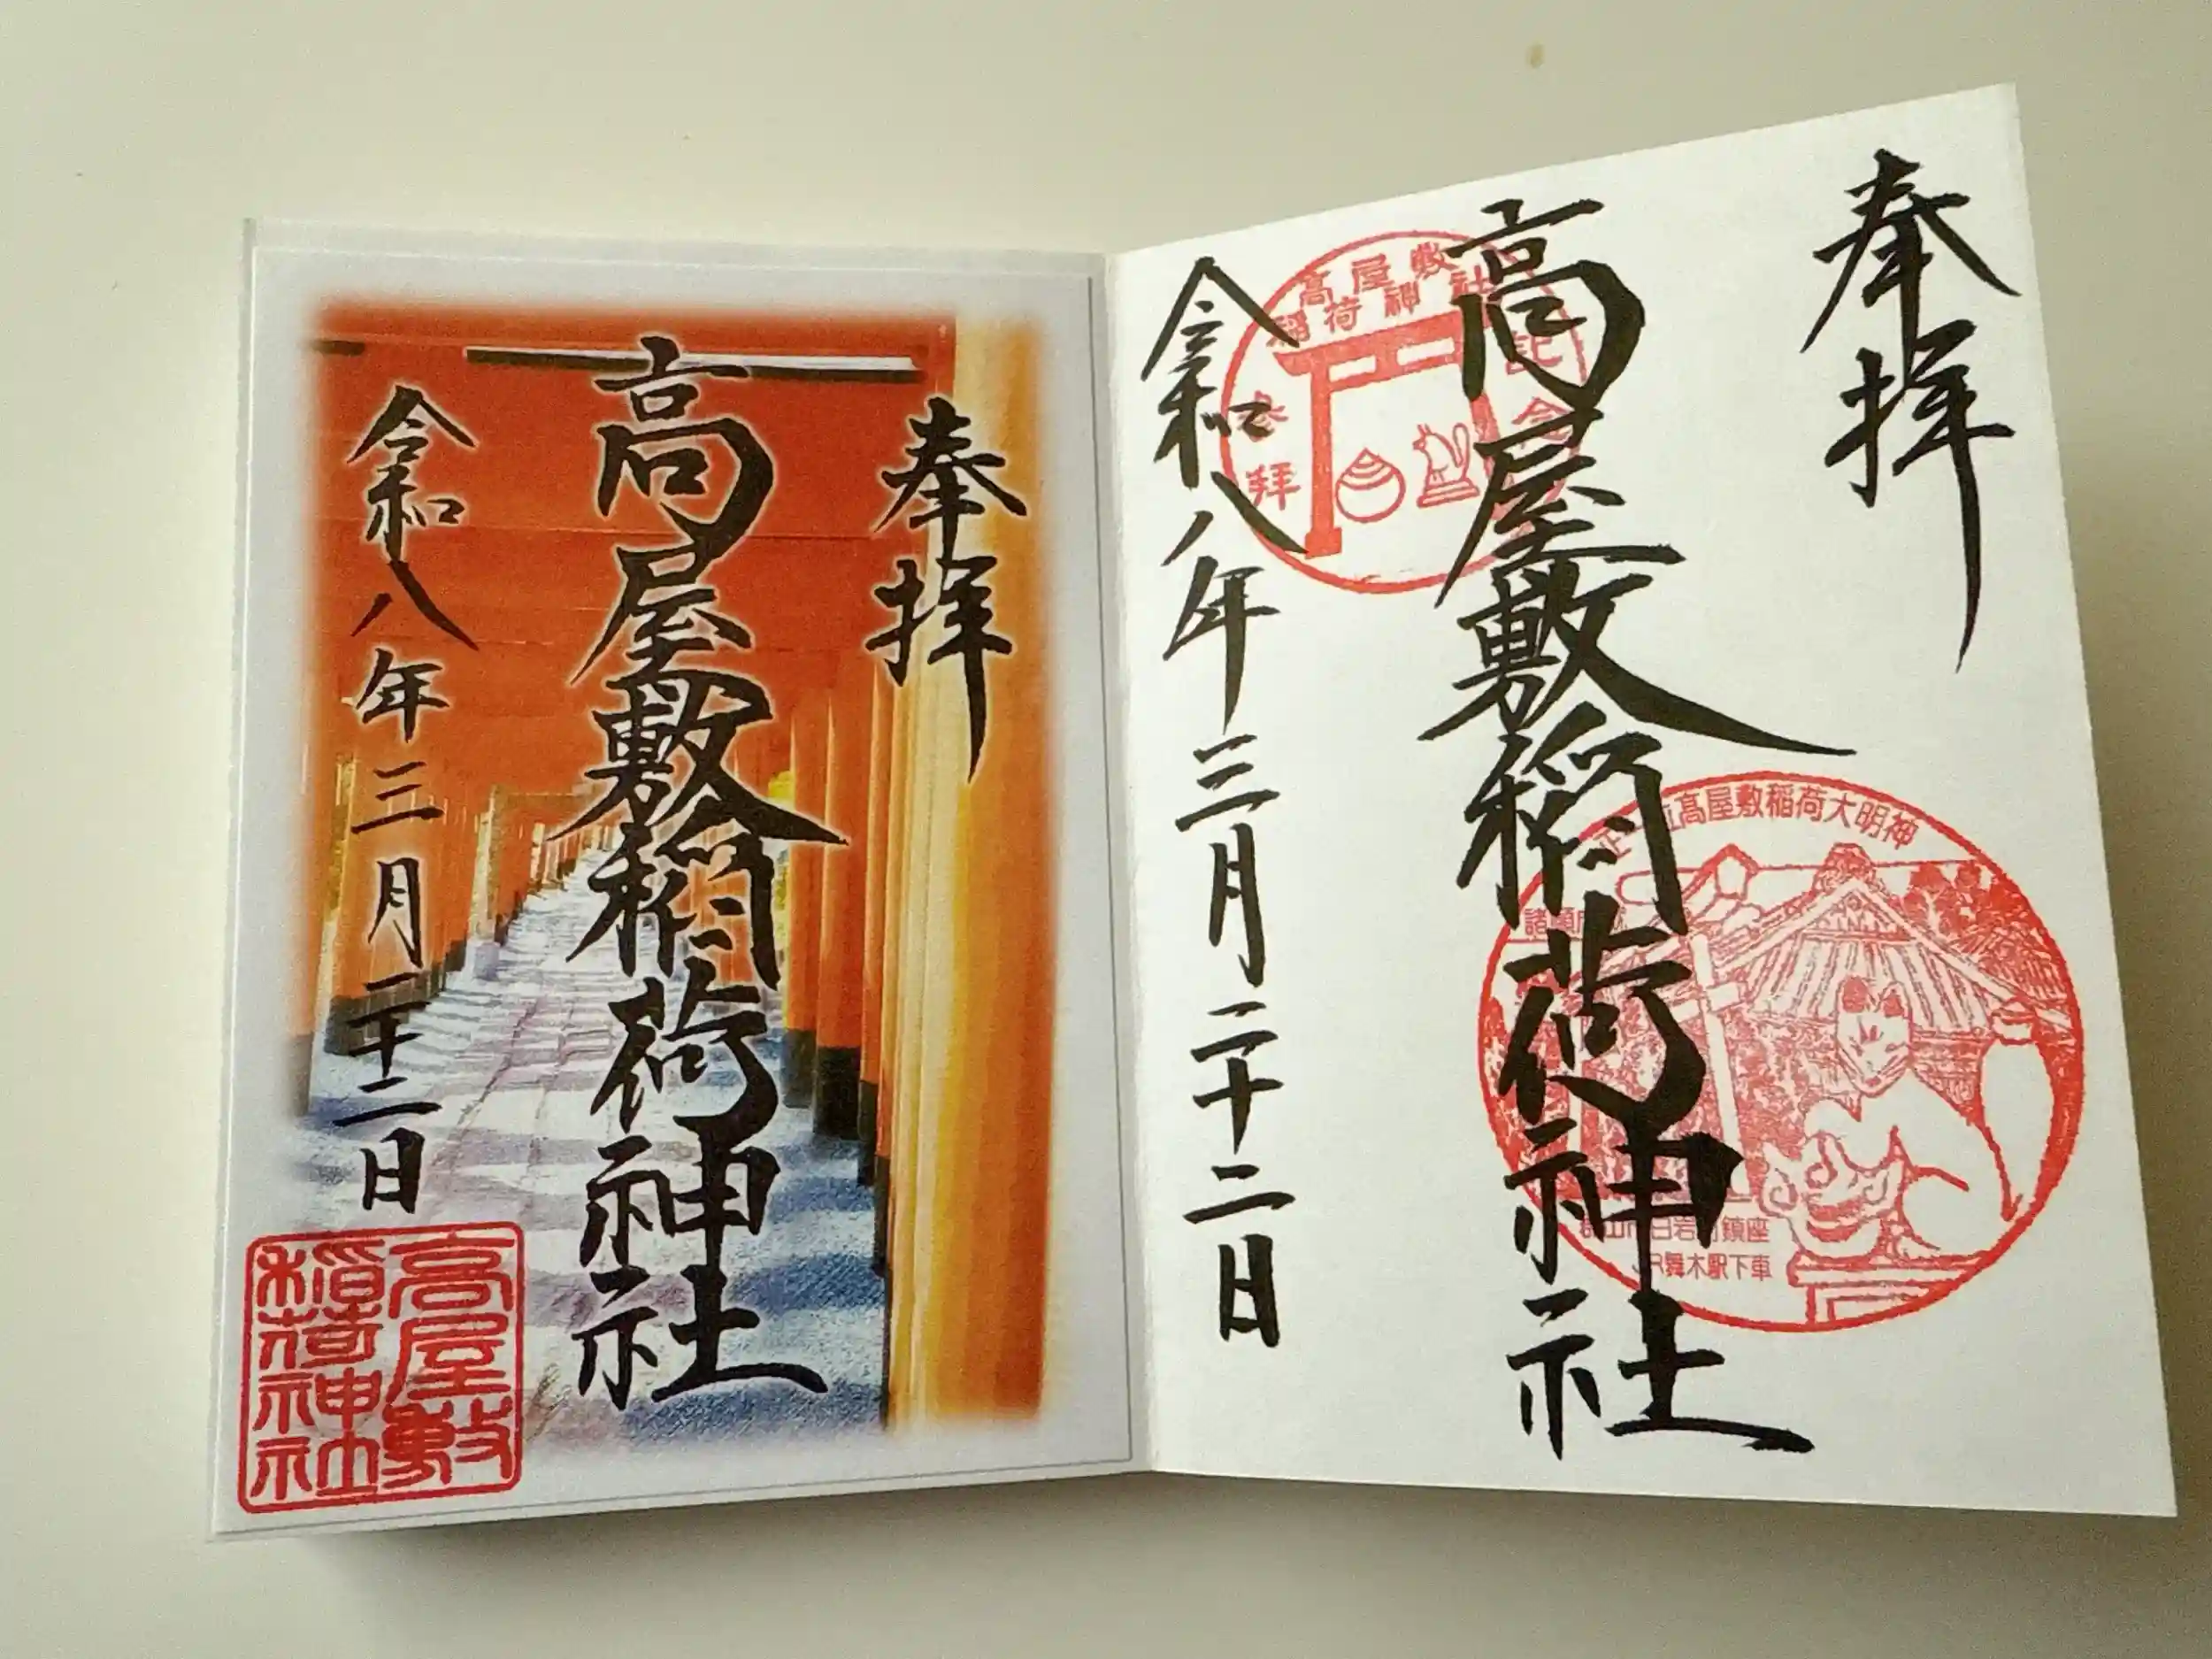 奉拝
高屋敷稲荷神社
令和八年三月二十二日
高屋敷
稲荷神社
参拝
記念
高屋敷稲荷大明神
白岩町鎮座
JR舞木駅下車
奉拝
高屋敷稲荷神社
令和八年三月二十二日
高屋敷
稲荷神社